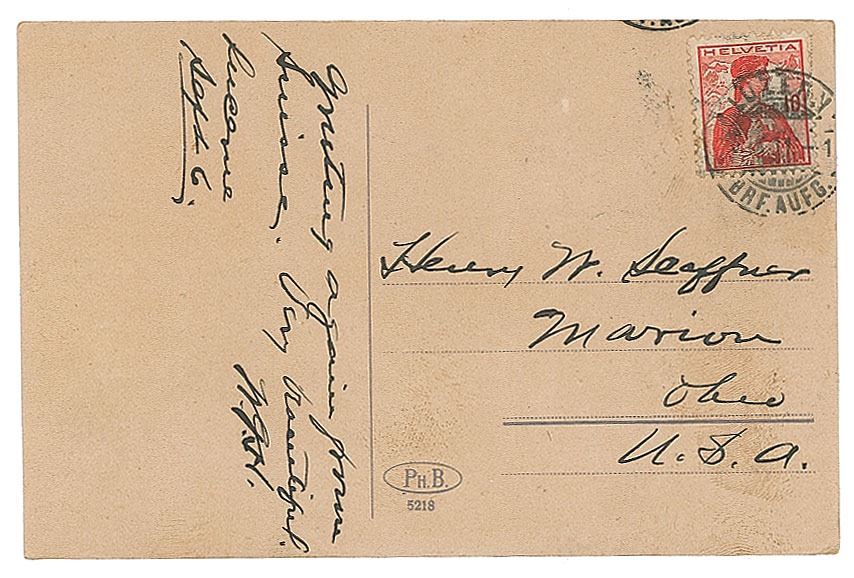 Lucerne
Sept. 6.
Greetings again from
Suisse. Very beautiful.
W.G.H.
HELVETIA
10
LUZERN
BRF. AUFG.
Henry W. Seaffner
Marion
Ohio
U. S. A.
PH.B.
5218